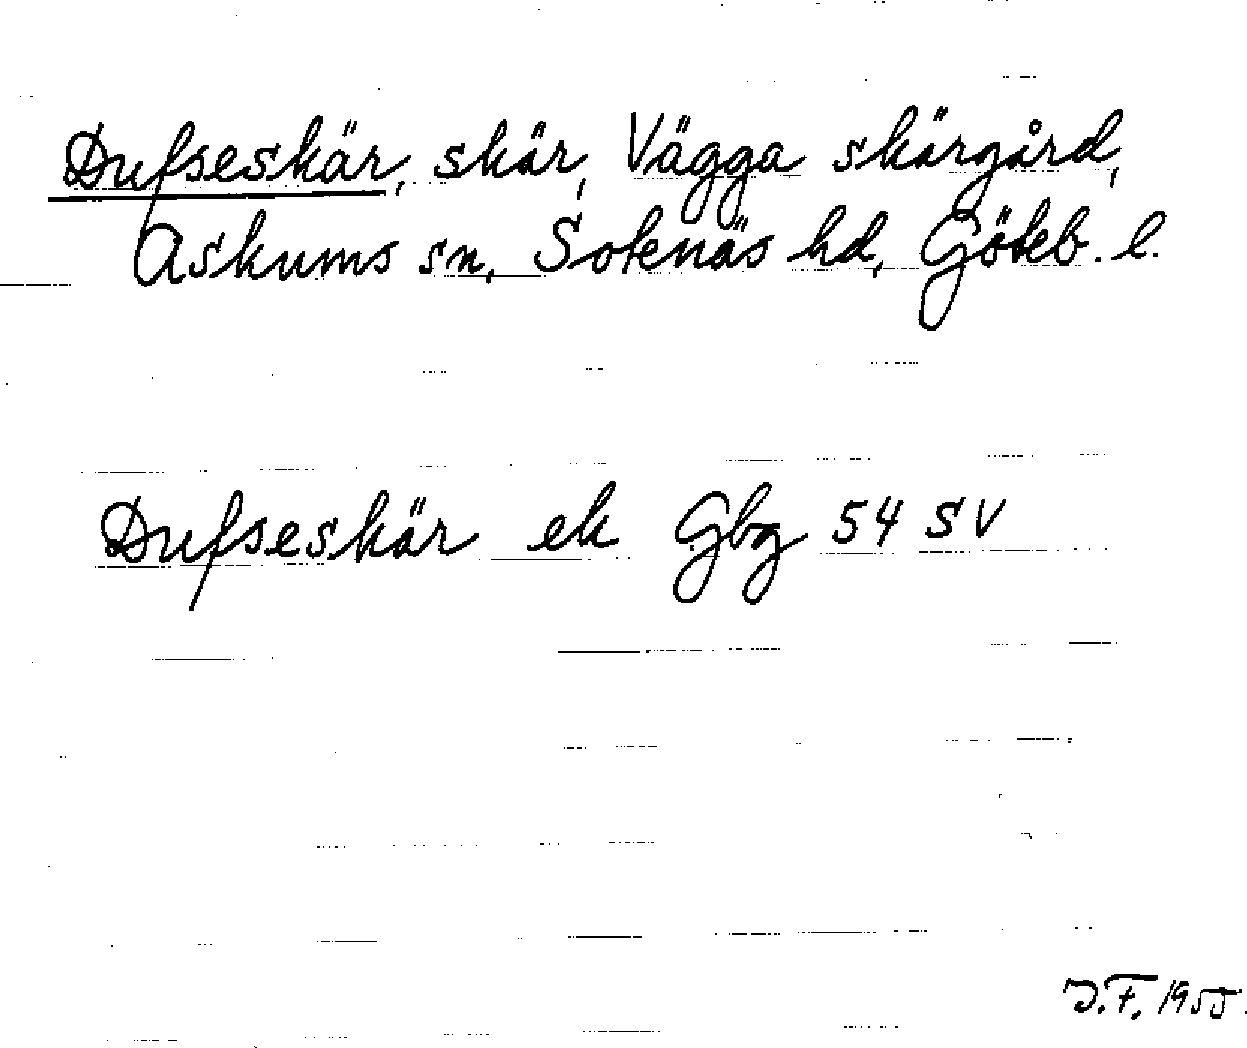 Dufseskär, skär, Vägga skärgård,
Askums sn, Sotenäs hd, Göteb. l.
Dufseskär ek Gbg 54 SV
J.F. 1955.